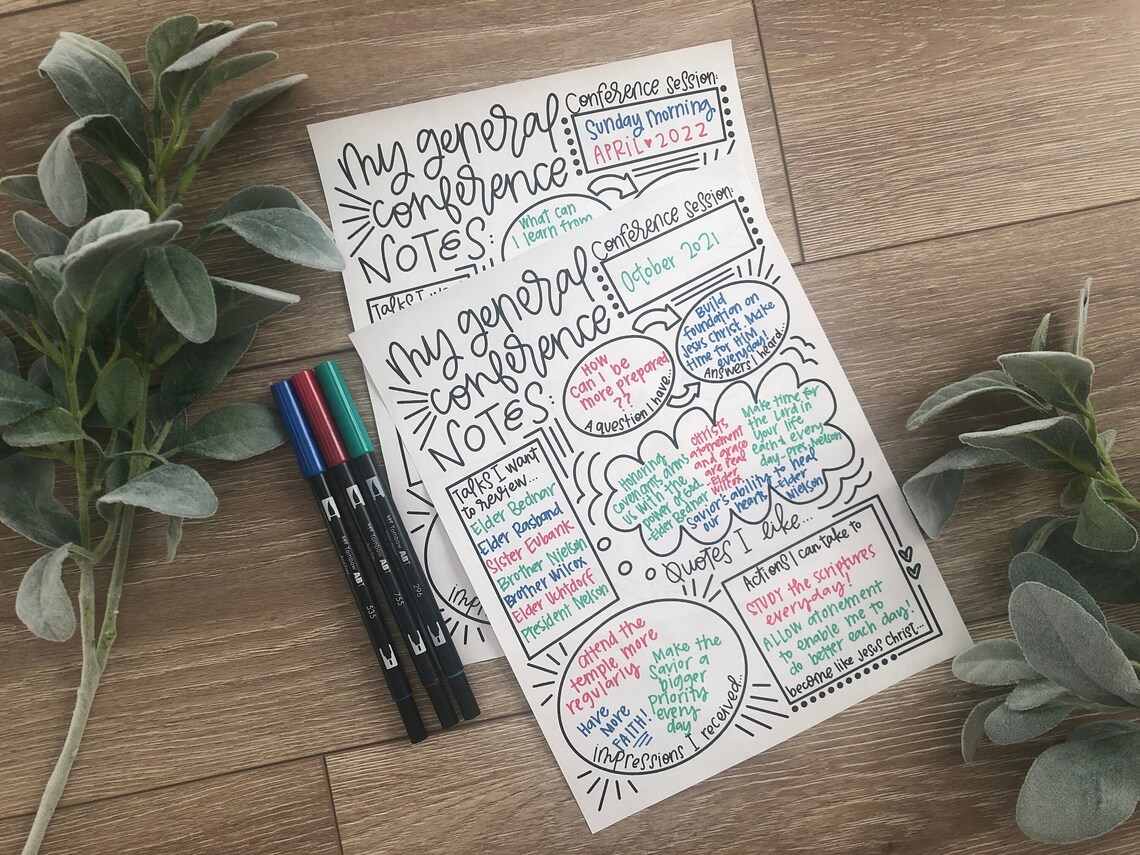 my general
conference
NOTES:
Conference Session:
Sunday Morning
APRIL ♥ 2022
What can
I learn from
Talks I w
impr
my general
conference
NOTES:
Conference Session:
October 2021
HOW
can I be
more prepared
??
A question I have...
Build
foundation on
Jesus Christ. Make
time for HIM
everyday!
Answers I heard...
Talks I want
to review...
Elder Bednar
Elder Rasband
Sister Eubank
Brother Nielson
Brother Wilcox
Elder Uchtdorf
President Nelson
Honoring
covenants arms
us with the
power of God.
-Elder Bednar
Christs
atonement
and grace
are real
-Elder
Wilcox
Make time for
the Lord in
your life
each & every
day-pres. Nelson
Savior's ability to heal
our hearts -Elder
Nielson
Quotes I like...
Actions I can take to
STUDY the scriptures
everyday!
ALLOW atonement
to enable me to
do better each day!
become like Jesus Christ...
attend the
temple more
regularly
Make the
Savior a
bigger
Priority
every
day
Have
More
FAITH!
impressions I received...
Tombow ABT
535
Tombow ABT
755
Tombow ABT
296